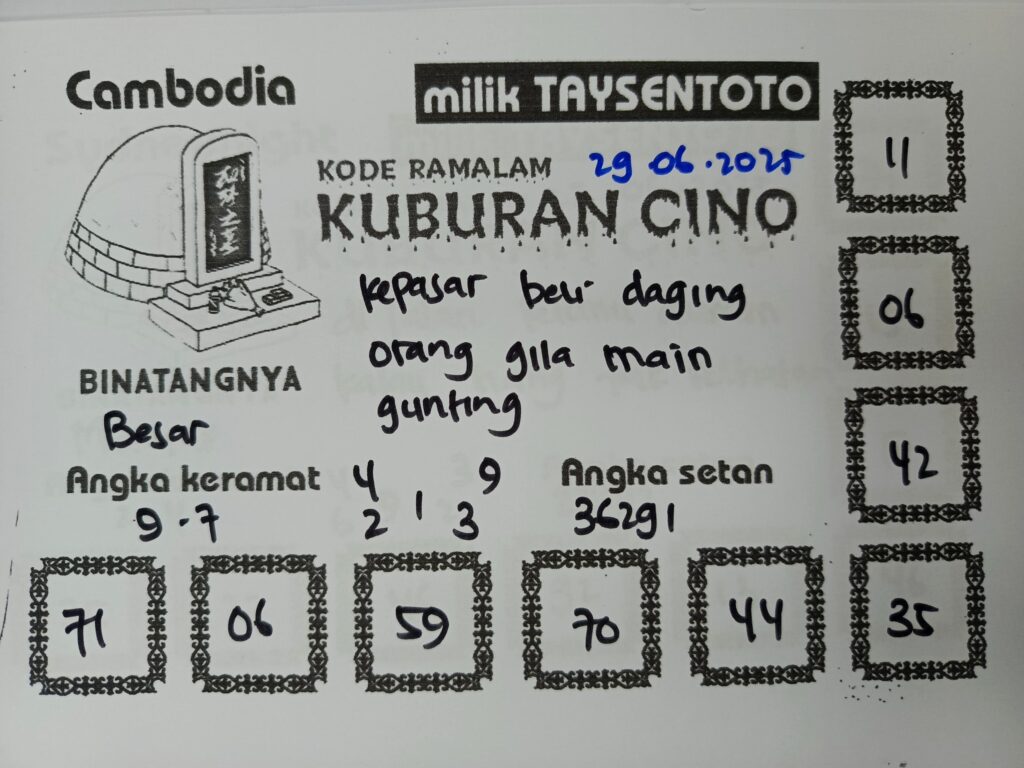 Cambodia
milik TAYSENTOTO
KODE RAMALAM 29 06.2025
KUBURAN CINO
kepasar beli daging
orang gila main
gunting
BINATANGNYA
Besar
Angka keramat
9.7
4 9
1
2 3
Angka setan
36291
11
06
42
71 06 59 70 44 35